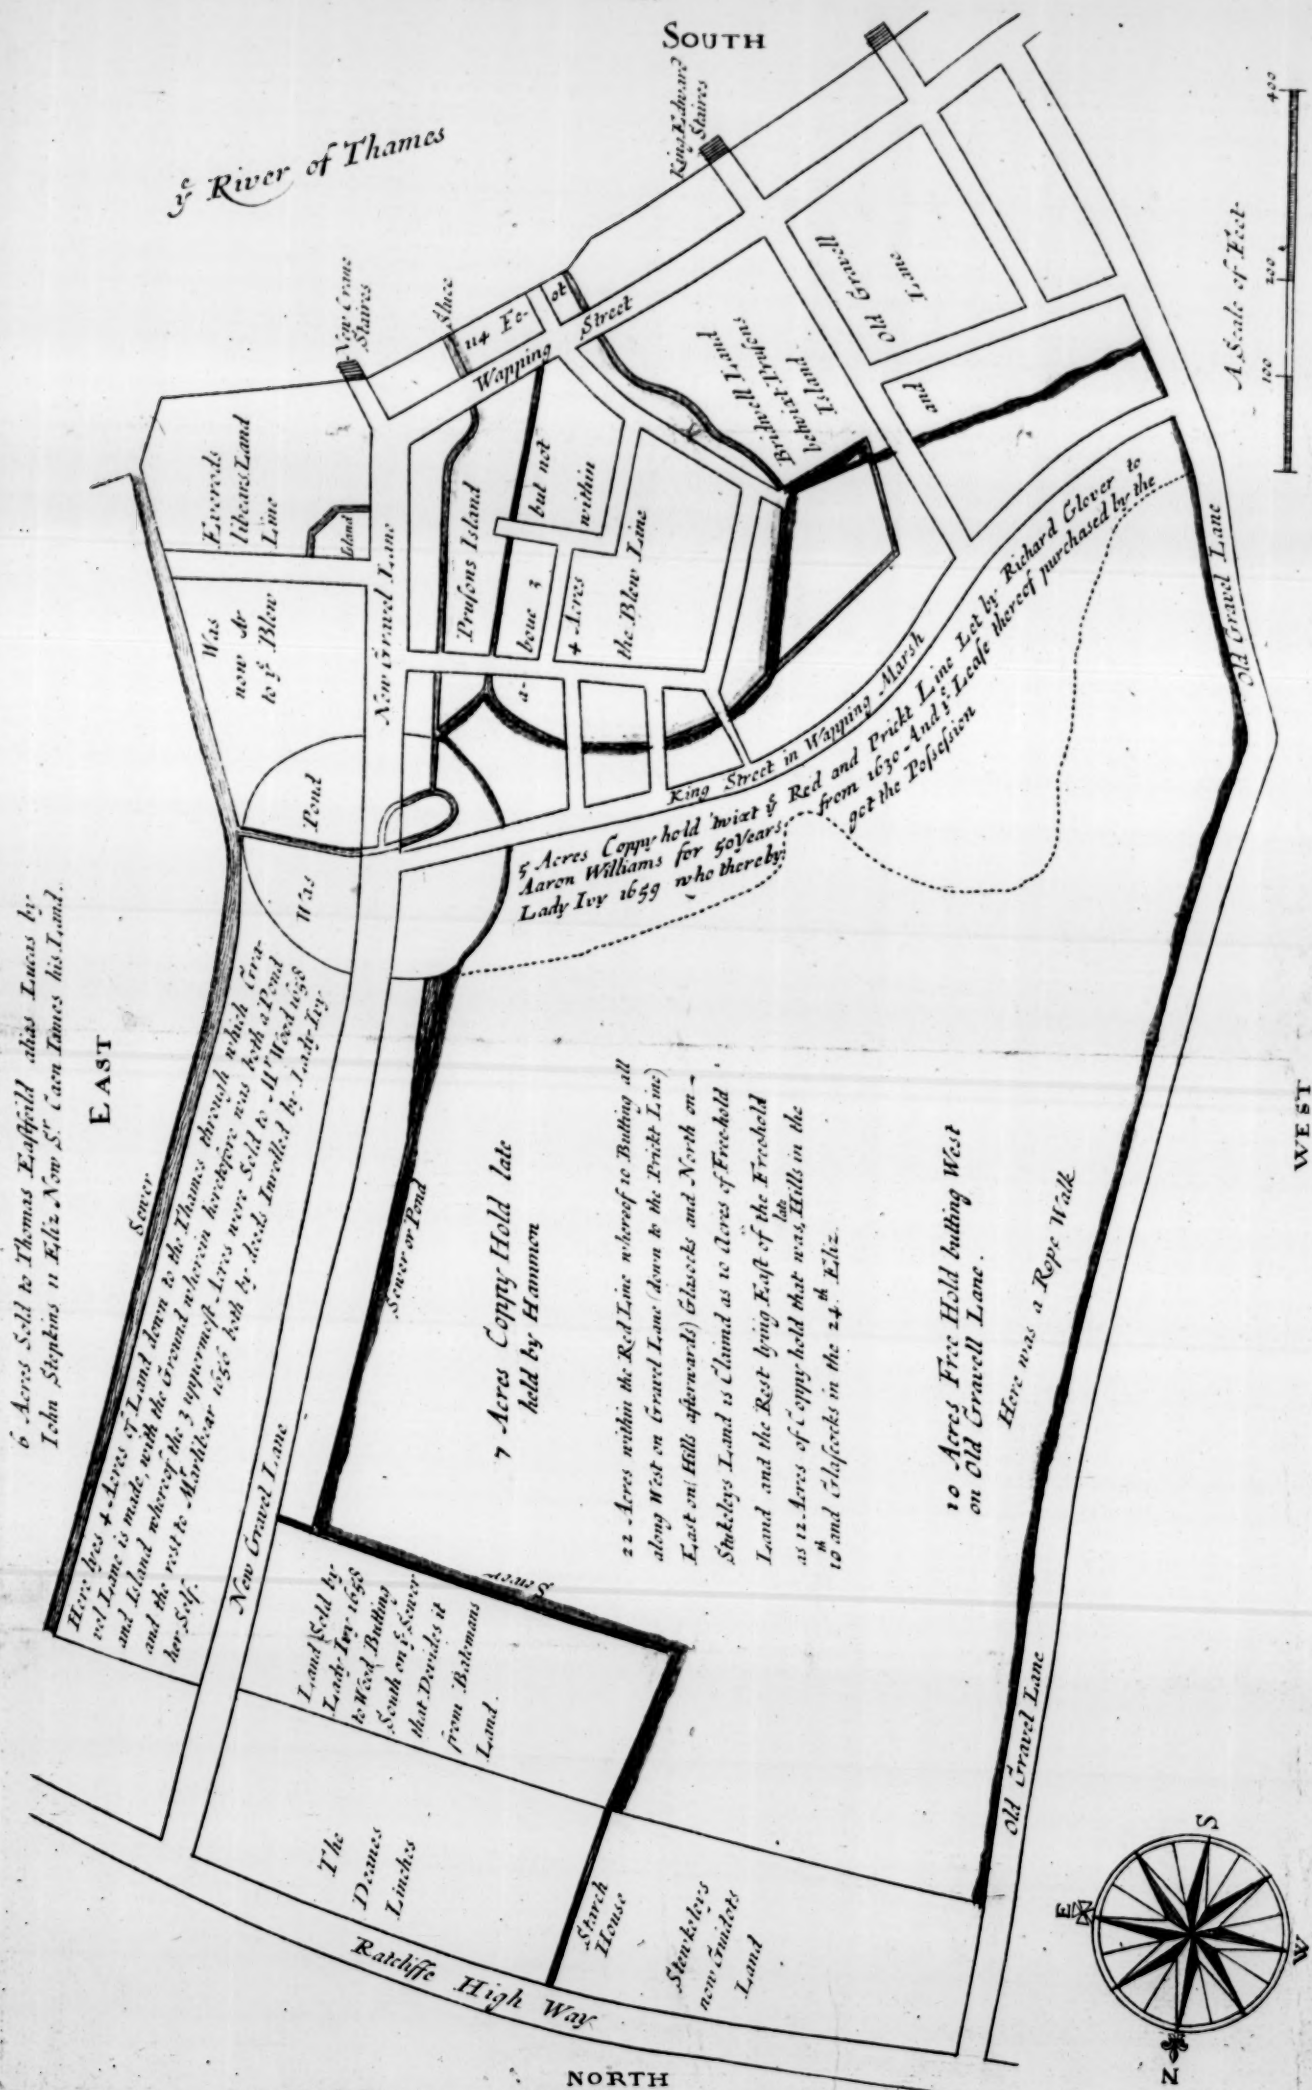 SOUTH
yᵉ River of Thames
King Edward
Staires
New Crane
Staires
Sluce
114 Fo-
ot
Wapping Street
Old Gravell
Lane
and
Bridwell Land
betwixt Prusons
Island
A Scale of Feet
100
200
400
Evereds
Land
Line
Island
Was
now
to yᵉ Blew
New Gravel Lane
Prusons Island
but not
within
a-
boue 3
4 Acres
the Blew Line
Pond
Was
King Street in Wapping Marsh
5 Acres Coppy hold 'twixt yᵉ Red and Prickt Line Let by Richard Glover to
Aaron Williams for 50 Years from 1630 - And yᵉ Lease thereof purchased by the
Lady Ivy 1659 who thereby got the Possession
Old Gravel Lane
EAST
6 Acres Sold to Thomas Eastfeild alias Lucas by
Iohn Stepkins 11 Eliz Now Sʳ Caen Iimes his Land.
Sewer
Here lyes 4 Acres of Land down to the Thames through which Gra-
vel Lane is made, with the Ground wherein heretofore was both a Pond
and Island whereof the 3 uppermost Acres were Sold to Mʳ Wood 1658
and the rest to Mʳ Marlibear 1656 both by deeds Inrolled by Lady Ivy
her Self.
New Gravel Lane
Sewer or Pond
7 Acres Coppy Hold late
held by Hammon
22 Acres within the Red Line whereof 10 Butting all
along West on Gravel Lane (down to the Prickt Line)
East on (Hills afterwards) Glascocks and North on -
Stukeleys Land is Claimd as 10 Acres of Freehold
Land and the Rest lying East of the Freehold
as 12 Acres of Coppy held that was late Hills in the
10ᵗʰ and Glascocks in the 24ᵗʰ Eliz.
10 Acres Free Hold butting West
on Old Gravell Lane.
Here was a Rope Walk
WEST
Sewer
Land Sold by
Lady Ivy 1658
to Wood Butting
South on yᵉ Sewer
that Devides it
from Batemans
Land.
The
Deanes
Linches
Starch
House
Stewkeleys
now Guidots
Land
Old Gravel Lane
Ratcliffe High Way
NORTH
E
S
W
N